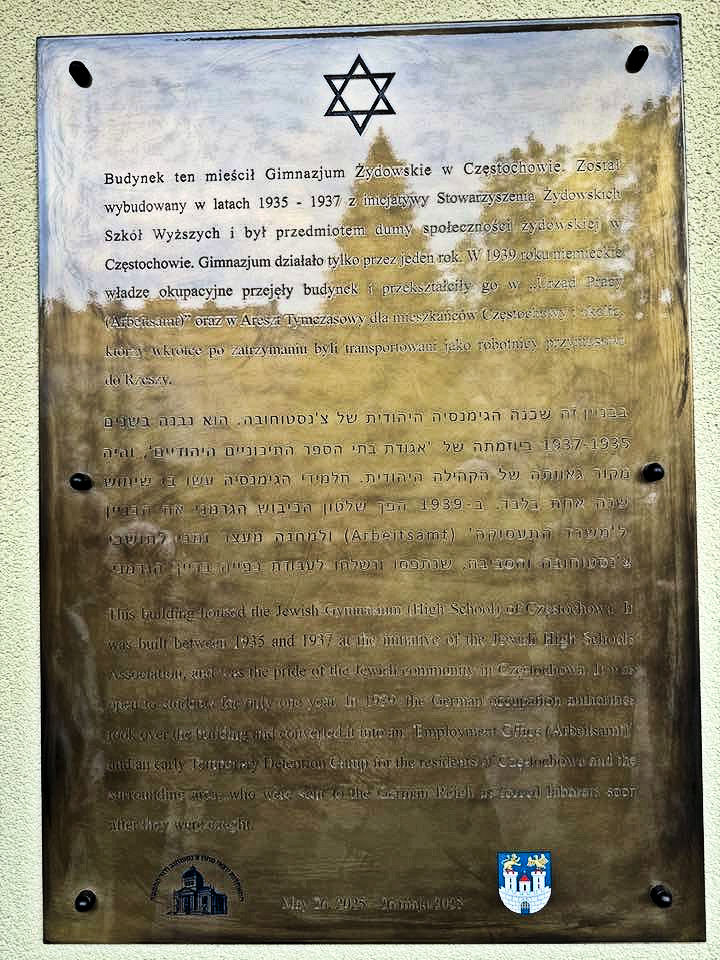 Budynek ten mieścił Gimnazjum Żydowskie w Częstochowie. Został
wybudowany w latach 1935 - 1937 z inicjatywy Stowarzyszenia Żydowskich
Szkół Wyższych i był przedmiotem dumy społeczności żydowskiej w
Częstochowie. Gimnazjum działało tylko przez jeden rok. W 1939 roku niemieckie
władze okupacyjne przejęły budynek i przekształciły go w „Urząd Pracy
(Arbeitsamt)” oraz w Areszt Tymczasowy dla mieszkańców Częstochowy i okolic,
którzy wkrótce po zatrzymaniu byli transportowani jako robotnicy przymusowi
do Rzeszy.
בבניין זה שכנה הגימנסיה היהודית של צ'נסטוחובה. הוא נבנה בשנים
1937-1935 ביוזמתה של 'אגודת בתי הספר התיכוניים היהודיים', והיה
מקור גאוותה של הקהילה היהודית. תלמידי הגימנסיה עשו בו שימוש
שנה אחת בלבד. ב-1939 הפך שלטון הכיבוש הגרמני את הבניין
ל'משרד התעסוקה' (Arbeitsamt) ולמחנה מעצר זמני לתושבי
צ'נסטוחובה והסביבה, שנתפסו ונשלחו לעבודת כפייה ברייך הגרמני.
This building housed the Jewish Gymnasium (High School) of Częstochowa. It
was built between 1935 and 1937 at the initiative of the Jewish High Schools
Association, and was the pride of the Jewish community in Częstochowa. It was
open to students for only one year. In 1939, the German occupation authorities
took over the building and converted it into an 'Employment Office (Arbeitsamt)'
and an early Temporary Detention Camp for the residents of Częstochowa and the
surrounding area, who were sent to the German Reich as forced laborers soon
after they were caught.
May 26, - 26 maja